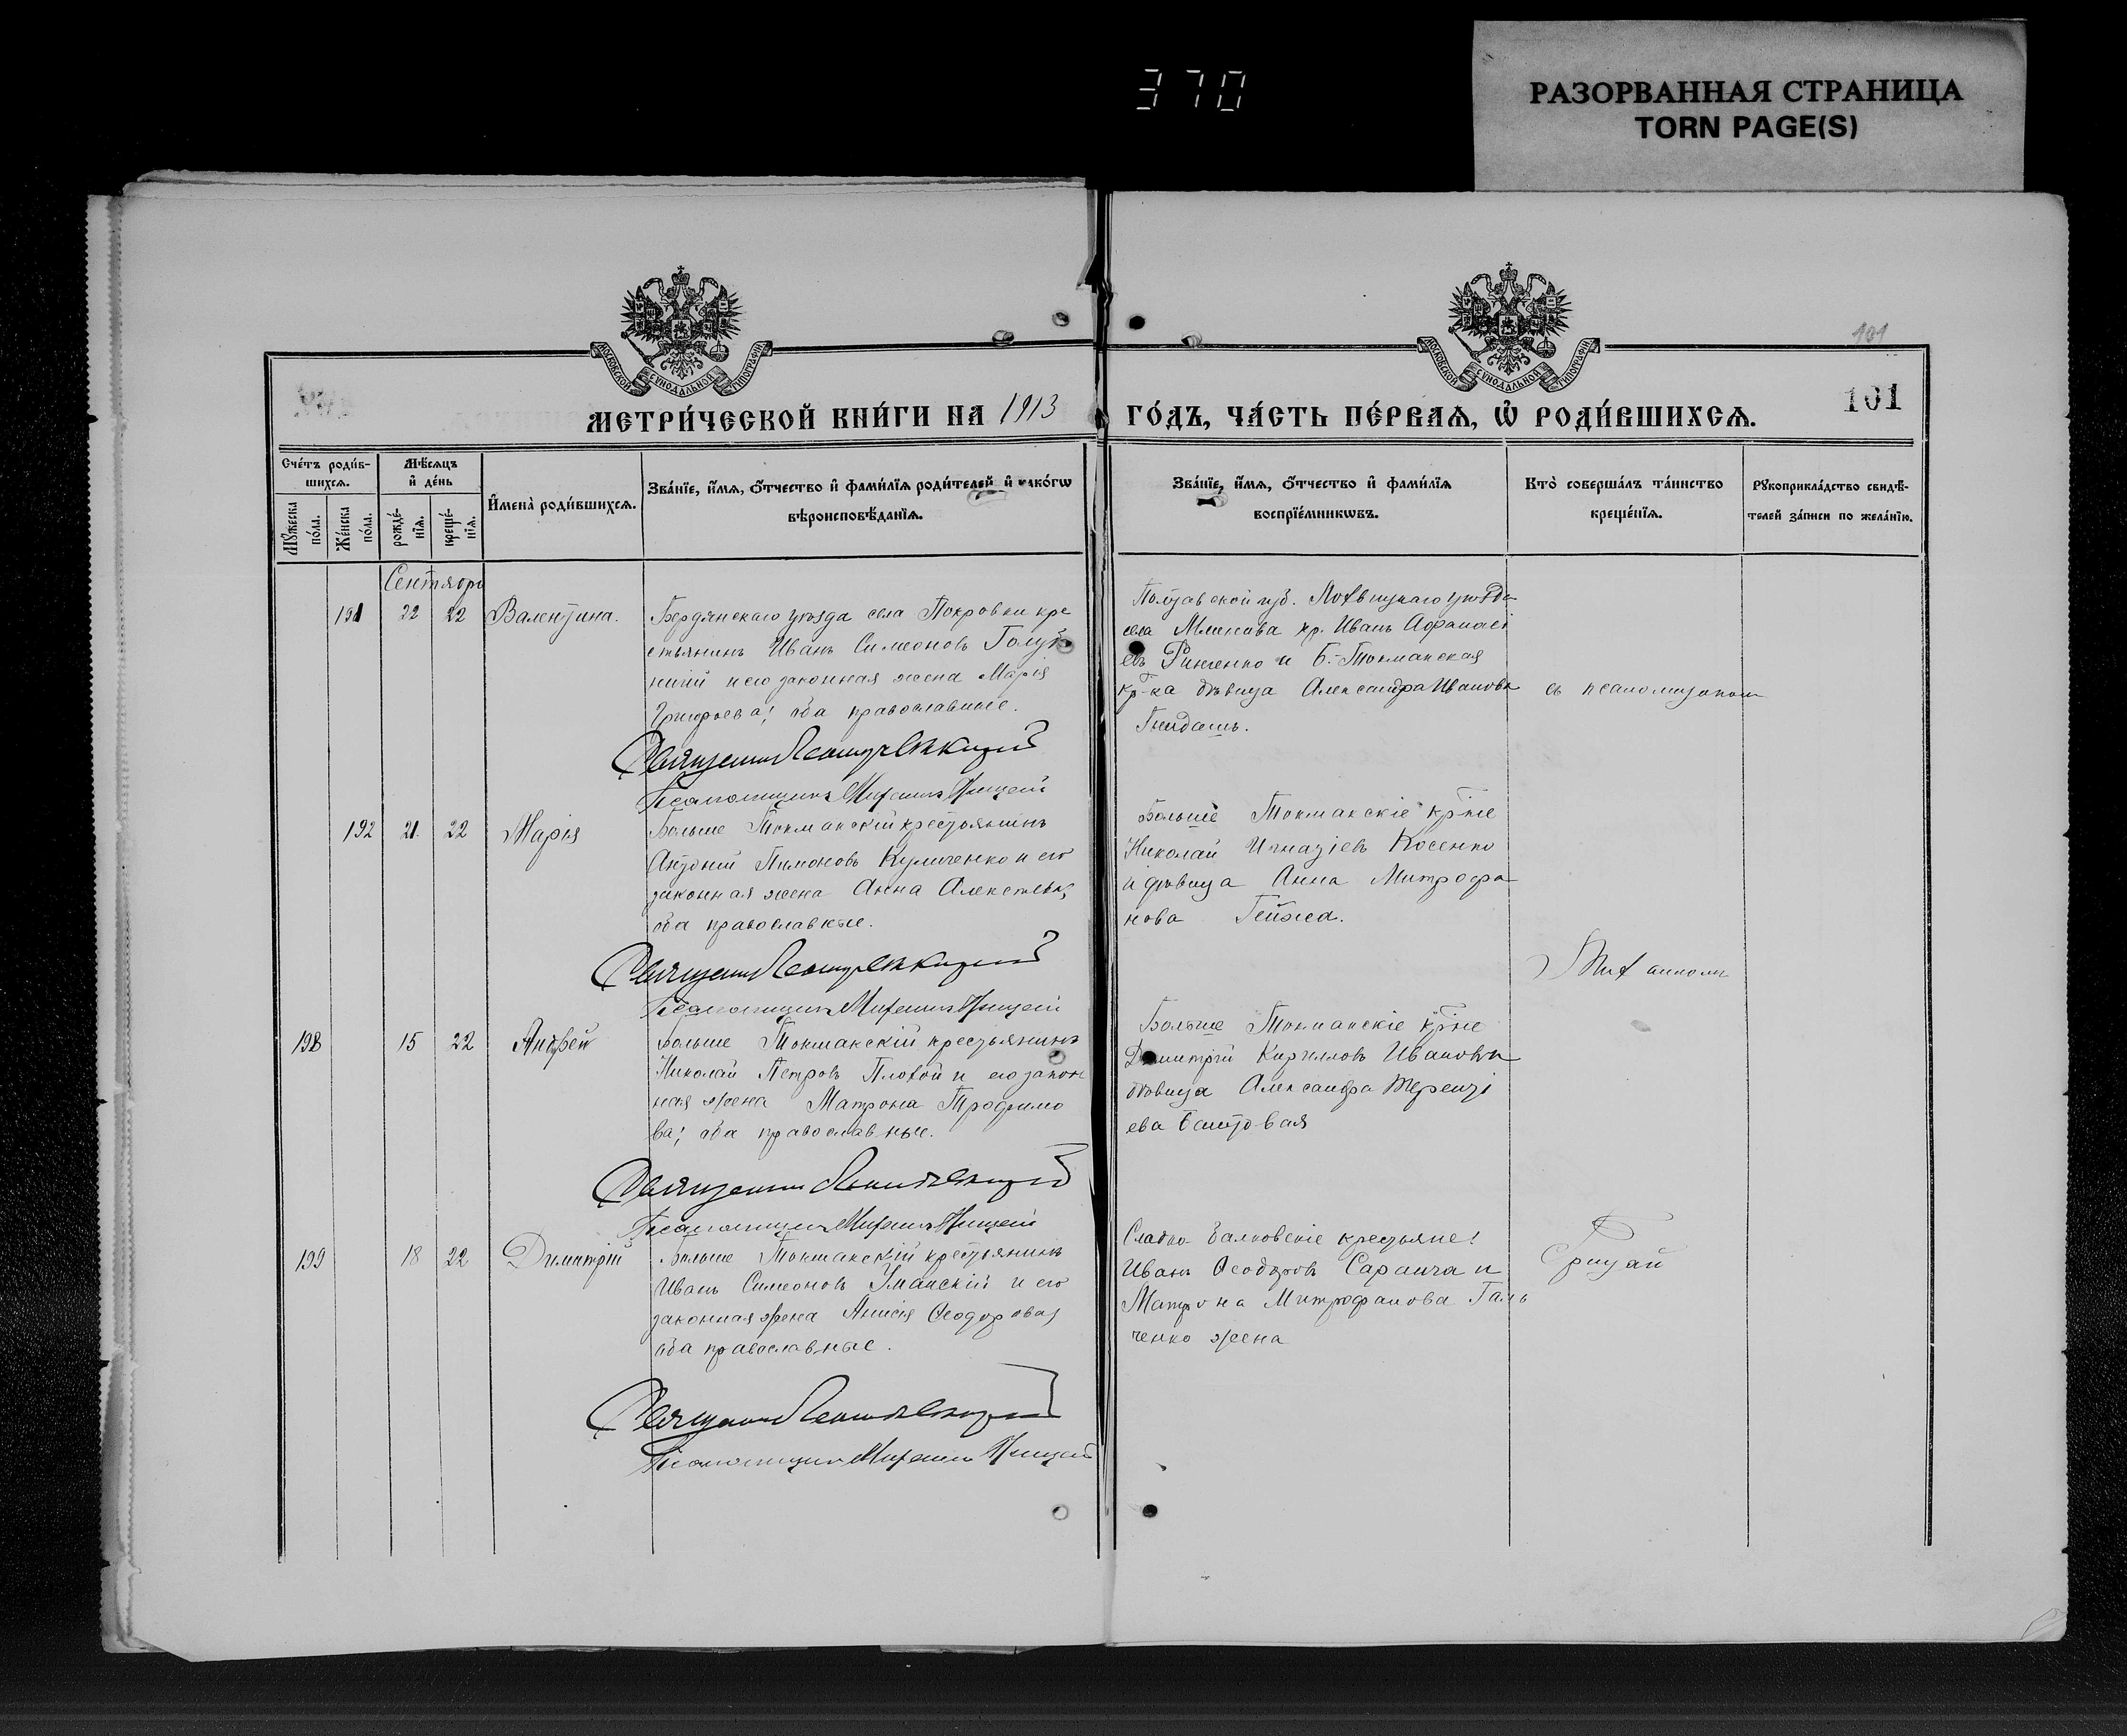 370
РАЗОРВАННАЯ СТРАНИЦА
TORN PAGE(S)
МОСКОВСКОЙ СѴНОДАЛЬНОЙ ТИПОГРАФІИ
МОСКОВСКОЙ СѴНОДАЛЬНОЙ ТИПОГРАФІИ
101
101
МЕТРИ́ЧЕСКОЙ КНИ́ГИ НА 1913
ГО́ДЪ, ЧА́СТЬ ПЕ́РВАѦ, Ѡ҆ РОДИ́ВШИХСѦ.
Сче́тъ роди́в-
шихсѧ.
Мꙋ́жеска по́ла.
Же́нска по́ла.
Мѣ́сѧцъ
и҆ де́нь
рожде́-нїѧ.
креще́-нїѧ.
И҆мена̀ роди́вшихсѧ.
Зва́нїе, и҆́мѧ, ѻ҆́тчество и҆ фами́лїѧ роди́телей и҆ како́гѡ
вѣроисповѣ́данїѧ.
Зва́нїе, и҆́мѧ, ѻ҆́тчество и҆ фами́лїѧ
воспрїе́мникѡвъ.
Кто̀ соверша́лъ та́инство
креще́нїѧ.
Рꙋкоприкла́дство свидѣ́-
телей за́писи по жела́нїю.
Сентября
191 22 22 Валентина.
Бердянскаго уѣзда села Покровки кре
стьянинъ Иванъ Симеоновъ
и его законная жена Марія
Григорьева; оба православные.
Священник
Псаломщикъ
Полтавской губ. Лохвицкаго уѣзда
села кр. Иванъ Афанасі
евъ и Б.-Токмакская
кр-ка дѣвица Александра Иванова
Гнидашъ.
съ псаломщикомъ
192 21 22 Марія
Больше Токмакскій крестьянинъ
Антоній Пимоновъ Куличенко и его
законная жена Анна Алексѣева;
оба православные.
Священник
Псаломщикъ
Больше Токмакскіе кр-не
Николай Игнатіевъ Косенко
и дѣвица Анна Митрофа
нова Гейжа.
198 15 22 Андрей
Больше Токмакскій крестьянинъ
Николай Петровъ Плохой и его закон
ная жена Матрона Трофимо
ва; оба православные.
Священник
Псаломщикъ
Больше Токмакскіе кр-не
Димитрій Кирилловъ
дѣвица Александра Теренті
ева
199 18 22 Димитрій
Больше Токмакскій крестьянинъ
Иванъ Симеоновъ Уманскій и его
законная жена Анисія Ѳеодорова;
оба православные.
Священник
Псаломщикъ
Сладко Балковскіе крестьяне:
Иванъ Ѳеодоровъ и
Матрона Митрофанова Галь
ченко жена